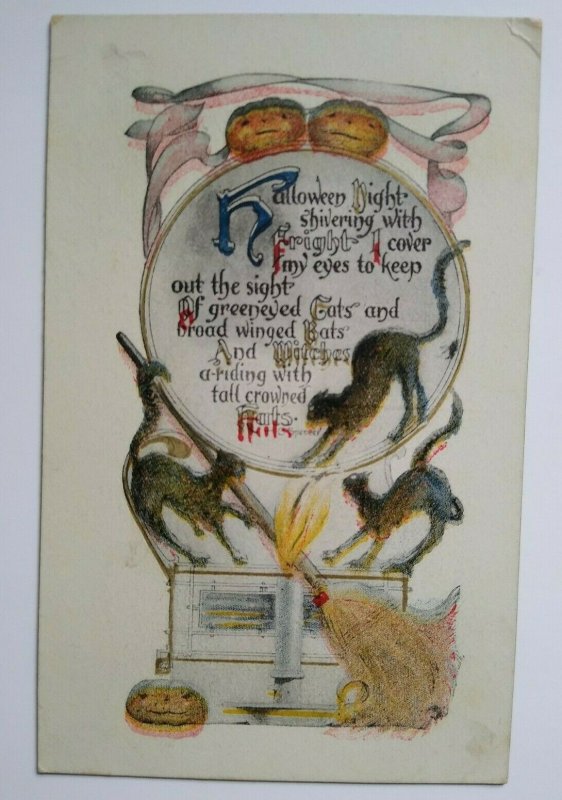 Halloween Night
shivering with
Fright I cover
my eyes to keep
out the sight
Of greeneyed Cats and
broad winged Bats
And Witches
a-riding with
tall crowned
Hats.